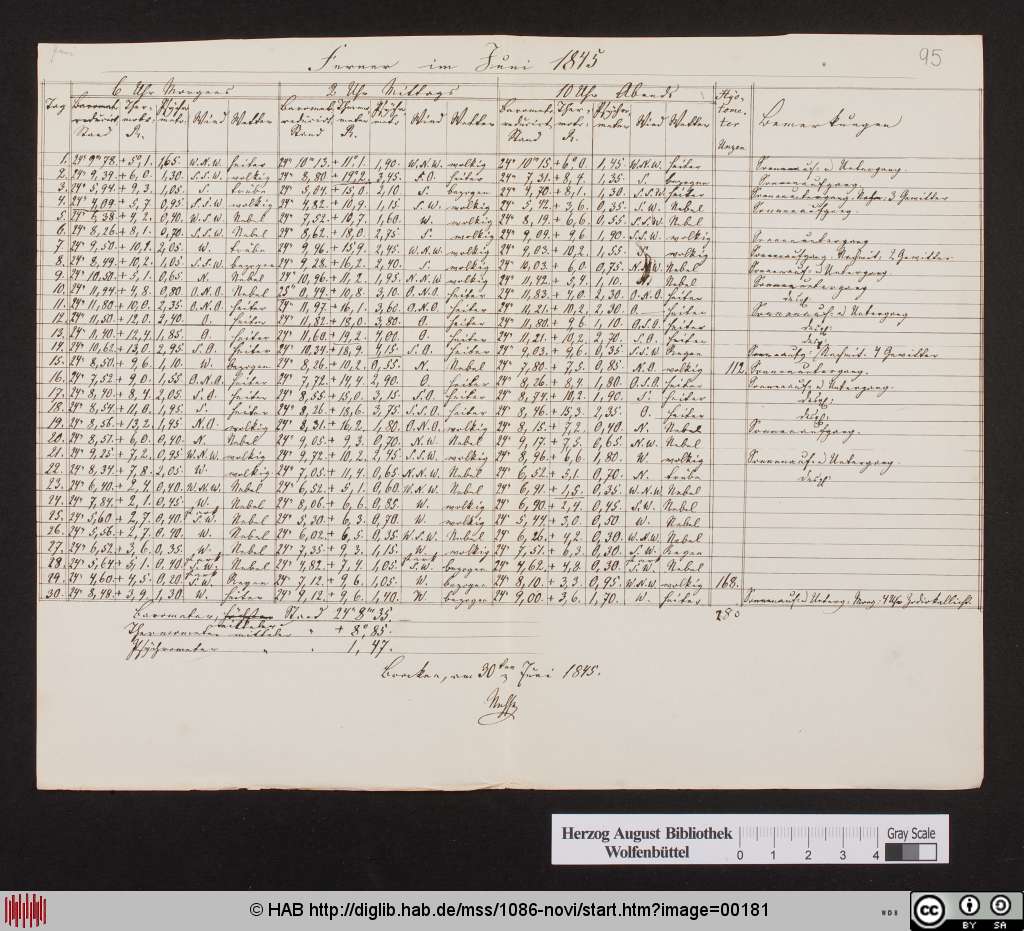 95
Ferner im Juni 1845
6 Uhr Morgens 2 Uhr Mittags 10 Uhr Abends Hyetometer Unzen Bemerkungen
Tag Baromet. reducirt Stand Thermotr. R. Psychrometr. Wind Wetter Baromet. reducirt Stand Thermometer R. Psychromet. Wind Wetter Baromet. reducirt. Stand Thermotr. R. Psychrometer Wind Wetter
1. 24" 9'''78. + 5°,1. 1,65. W.N.W. heiter 24" 10'''13. + 11°,1. 1,90. W.N.W. wolkig 24" 10'''15. + 6°,0. 1,45. W.N.W. heiter Sonnenauf- u Untergang.
2. 24" 9,39. + 6,0. 1,30. S.S.W. wolkig 24" 8,80 + 19,2. 3,45. heiter 24" 7,31. + 8,4. 1,35. S. bezogen Sonnenaufgang.
3. 24" 5,94 + 9,3. 1,05. S. trübe 24" 5,04 + 15,0. 2,10 S. bezogen 24" 4,70 + 8,1. 1,30. S.S.W. heiter Sonnenuntergang. 3 Gewitter
4. 24" 4,09 + 5,7. 0,95 S.S.W. wolkig 24" 4,82 + 10,9. 1,15 S.W. wolkig 24" 5,42 + 3,6. 0,35. S.W. Nebel Sonnenaufgang.
5. 24" 6,38 + 4,2. 0,40. W.S.W. Nebel 24" 7,52 + 10,7. 1,60 W. wolkig 24" 8,19 + 6,6. 0,55. S.S.W. Nebel
6. 24" 8,26 + 8,1. 0,70. S.S.W. Nebel 24" 8,62 + 18,0 2,75 S. wolkig 24" 9,09 + 9,6 1,90. S.S.W. wolkig Sonnenuntergang
7. 24" 9,50 + 10,2. 2,05. W. trübe 24" 9,96 + 15,9. 2,45. W.N.W. wolkig 24" 9,03 + 10,2. 1,55. wolkig Sonnenaufgang. Nachmit. 2 Gewitter.
8. 24" 8,49 + 10,2. 1,05 S.S.W. bezogen 24" 9,28 + 16,2. 2,40. S. wolkig 24" 10,03 + 6,0. 0,75. Nebel Sonnenauf- u Untergang.
9. 24" 10,50 + 5,1. 0,65. N. Nebel 24" 10,96 + 11,2. 1,45. N.N.W. wolkig 24" 11,42 + 5,4. 1,10. N. Nebel Sonnenuntergang
10. 24" 11,94 + 4,8. 0,80 O.N.O. Nebel 25" 0,49 + 10,8. 3,10. O.N.O. heiter 24" 11,83 + 4,0. 2,30. O.N.O. heiter desgl.
11. 24" 11,80 + 10,0. 2,35. O.N.O. heiter 24" 11,97 + 16,1. 3,60. O.N.O. heiter 24" 11,21 + 10,2. 2,30. O. heiter Sonnenauf- u Untergang
12. 24" 11,50 + 12,0. 2,40. O. heiter 24" 11,82 + 18,0. 3,80. O. heiter 24" 11,80 + 9,6. 1,10. O.S.O. heiter desgl.
13. 24" 11,40 + 12,4. 1,85. O. heiter 24" 11,60 + 19,2. 4,00. O. heiter 24" 11,21 + 10,2. 2,70. S.O. heiter desgl.
14. 24" 10,62 + 13,0. 2,45. S.O. heiter 24" 10,34 + 18,9. 4,15. S.O. heiter 24" 9,03 + 9,6. 0,35 S.S.W. Regen Sonnenaufg. Nachmit. 4 Gewitter
15. 24" 8,50 + 9,6 1,10. W. bezogen 24" 8,26 + 10,2. 0,55. N. Nebel 24" 7,80 + 7,5. 0,85. N.O. wolkig 112. Sonnenuntergang.
16. 24" 7,52 + 9,0. 1,55 O.N.O. heiter 24" 7,72 + 14,4. 2,90. O. heiter 24" 8,26 + 8,4. 1,80. O.S.O. heiter Sonnenauf- u Untergang.
17. 24" 8,40 + 8,4 2,05. S.O. heiter 24" 8,55 + 15,0. 3,15 S.O. heiter 24" 8,74 + 10,2. 1,90. S. heiter desgl.
18. 24" 8,54 + 11,0. 1,45. S. heiter 24" 8,26 + 18,6. 3,75. S.S.O. heiter 24" 8,46 + 15,3. 2,35. O. heiter desgl.
19. 24" 8,56 + 13,2. 1,45 N.O. wolkig 24" 8,31 + 16,2. 1,80. O.N.O. wolkig 24" 8,15 + 7,2. 0,40. N. Nebel Sonnenaufgang.
20. 24" 8,51 + 6,0. 0,40. N. Nebel 24" 9,05 + 9,3. 0,70. N.W. Nebel 24" 9,17 + 7,5. 0,65. N.W. Nebel
21. 24" 9,25 + 7,2. 0,95 W.N.W. wolkig 24" 9,72 + 10,2. 2,45. S.S.W. wolkig 24" 8,96 + 6,6. 1,80. W. wolkig Sonnenauf- u Untergang.
22. 24" 8,34 + 7,8. 2,05. W. wolkig 24" 7,05 + 11,4. 0,65. N.N.W. Nebel 24" 6,52 + 5,1. 0,70. N. trübe desgl.
23. 24" 6,40 + 2,4. 0,40. W.N.W. Nebel 24" 6,52 + 5,1. 0,60. W.N.W. Nebel 24" 6,91 + 1,5. 0,35. W.N.W. Nebel
24. 24" 7,84 + 2,1. 0,45. W. Nebel 24" 8,06 + 6,6. 0,85. W. wolkig 24" 6,90 + 2,4. 0,45. S.W. Nebel
25. 24" 5,60 + 2,7. 0,40. S.W. Nebel 24" 5,30 + 6,3. 0,70. W. wolkig 24" 5,44 + 3,0. 0,50 W. Nebel
26. 24" 5,56 + 2,7. 0,40. W. Nebel 24" 6,02 + 6,5. 0,35 W.S.W. Nebel 24" 6,26 + 4,2. 0,30. W.N.W. Nebel
27. 24" 6,52 + 3,6. 0,35. W. Nebel 24" 7,35 + 9,3. 1,15. W. wolkig 24" 7,51 + 6,3. 0,30. S.W. Regen
28. 24" 5,64 + 5,1. 0,40. S.W. Nebel 24" 4,82 + 7,4. 1,05. S.W. bezogen 24" 4,62 + 4,8. 0,30. S.W. Nebel
29. 24" 4,60 + 4,5. 0,20. S.W. Regen 24" 7,12 + 9,6. 1,05. W. bezogen 24" 8,10 + 3,3. 0,95. W.N.W. wolkig 168.
30. 24" 8,48 + 3,9. 1,30 W. heiter 24" 9,12 + 9,6. 1,40. W bezogen 24" 9,00 + 3,6. 1,70. W. heiter Sonnenauf- u Unterg. Morg. 4 Uhr Zodiakallicht.
Barometer, mittlerer Stand 24" 8'''35. 280
Thermometer mittler " + 8°,85.
Psychrometer " " 1,47.
Brocken, am 30ten Juni 1845.
Nehse
Herzog August Bibliothek
Wolfenbüttel
0 1 2 3 4
Gray Scale
© HAB http://diglib.hab.de/mss/1086-novi/start.htm?image=00181
WDB
cc BY SA